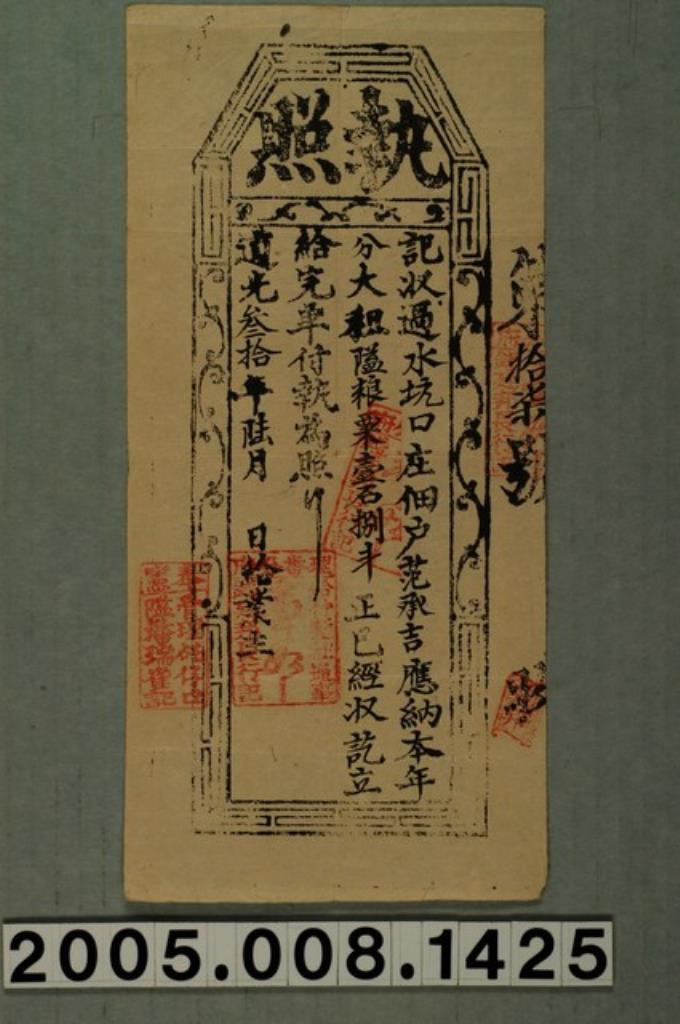 執照
第拾柒號
記収過水坑口庄佃户范承吉應納本年
分大租隘粮粟壹石捌斗正已經収訖立
給完单付執為照
道光叁拾年陸月 日給業主
2005.008.1425